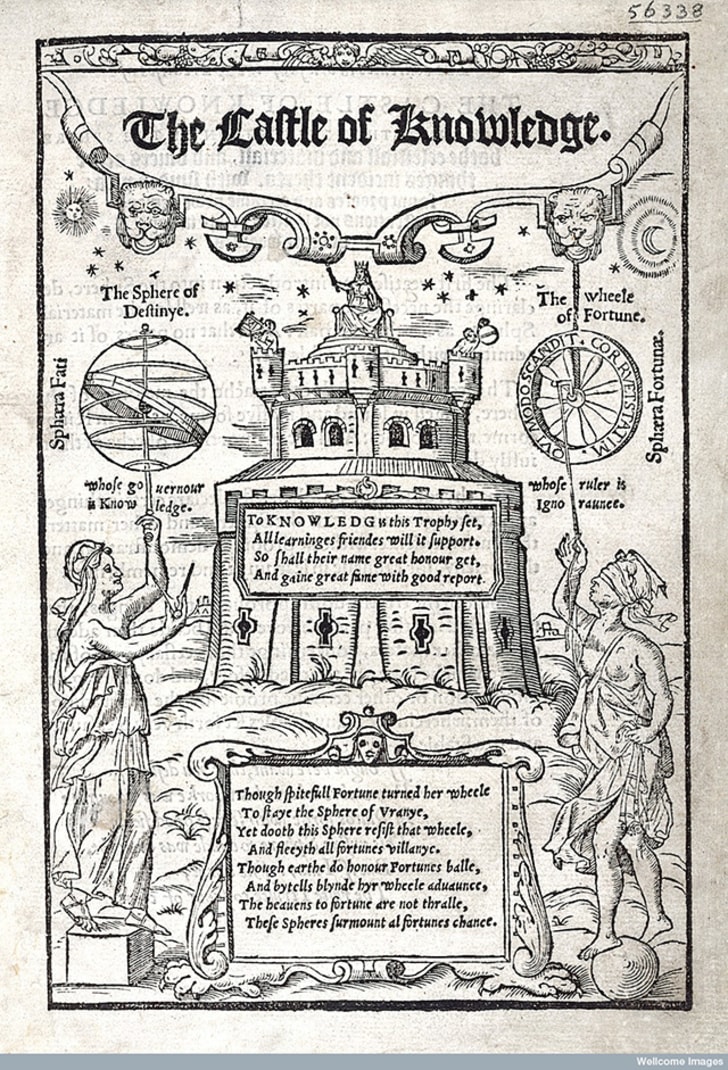 56338
The Castle of Knowledge.
The Sphere of
Destinye.
The wheele
of Fortune.
Sphæra Fati
Sphæra Fortunæ.
QVI MODO SCANDIT CORRVET STATIM.
whose go vernour
is Know ledge.
whose ruler is
Igno raunce.
To KNOWLEDG is this Trophy set,
All learninges friendes will it support.
So shall their name great honour get,
And gaine great fame with good report.
Though spitefull Fortune turned her wheele
To staye the Sphere of Vranye,
Yet dooth this Sphere resist that wheele,
And fleeyth all fortunes villanye.
Though earthe do honour Fortunes balle,
And bytells blynde hyr wheele aduaunce,
The heauens to fortune are not thralle,
These Spheres surmount al fortunes chance.
Wellcome Images